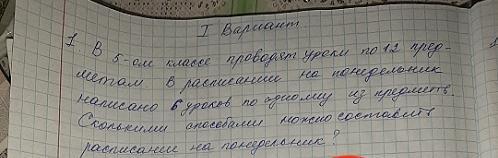 I Вариант.
1. В 5-ом классе проводят уроки по 12 пред-
метам. В расписании на понедельник
написано 6 уроков по одному из предметов.
Сколькими способами можно составить
расписание на понедельник?